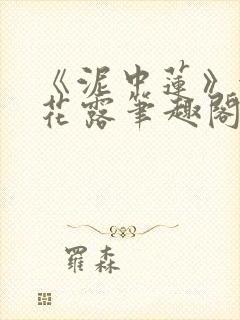 《泥中蓮》
花露筆趣閣
羅森